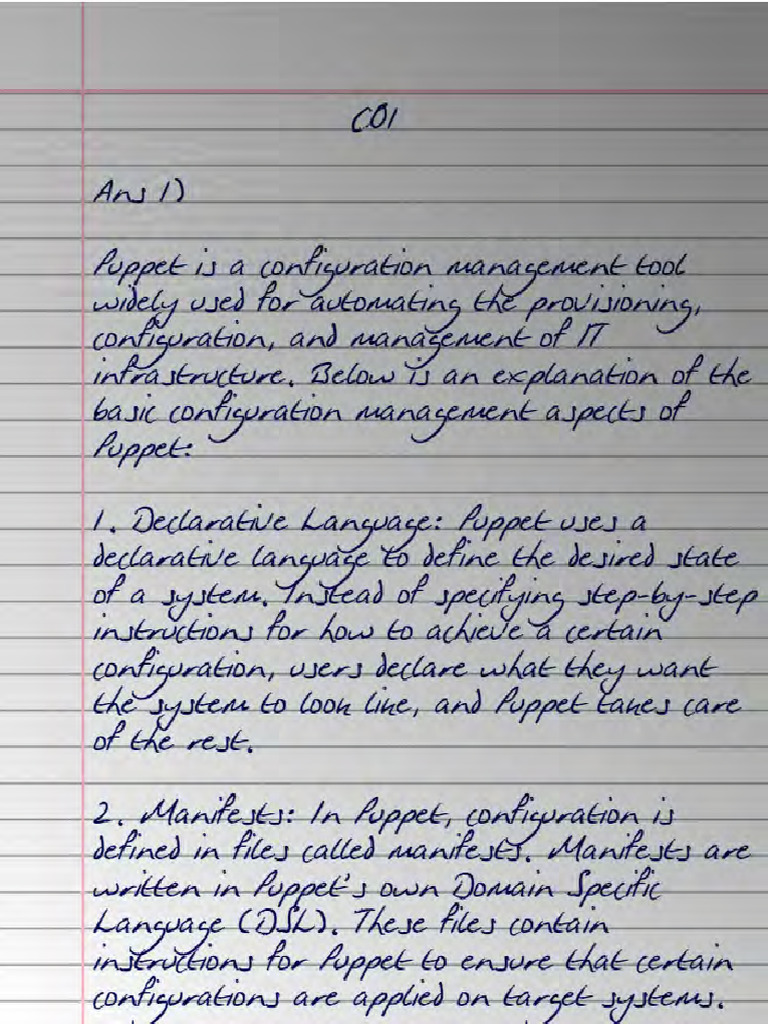 CO1
Ans 1)
Puppet is a configuration management tool
widely used for automating the provisioning,
configuration, and management of IT
infrastructure. Below is an explanation of the
basic configuration management aspects of
Puppet:
1. Declarative Language: Puppet uses a
declarative language to define the desired state
of a system. Instead of specifying step-by-step
instructions for how to achieve a certain
configuration, users declare what they want
the system to look like, and Puppet takes care
of the rest.
2. Manifests: In Puppet, configuration is
defined in files called manifests. Manifests are
written in Puppet's own Domain Specific
Language (DSL). These files contain
instructions for Puppet to ensure that certain
configurations are applied on target systems.